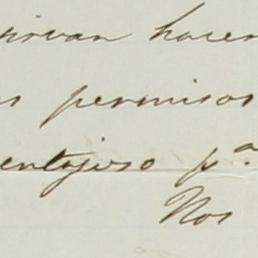 sirvan hacer
s permisos
entajoso pª
Nos